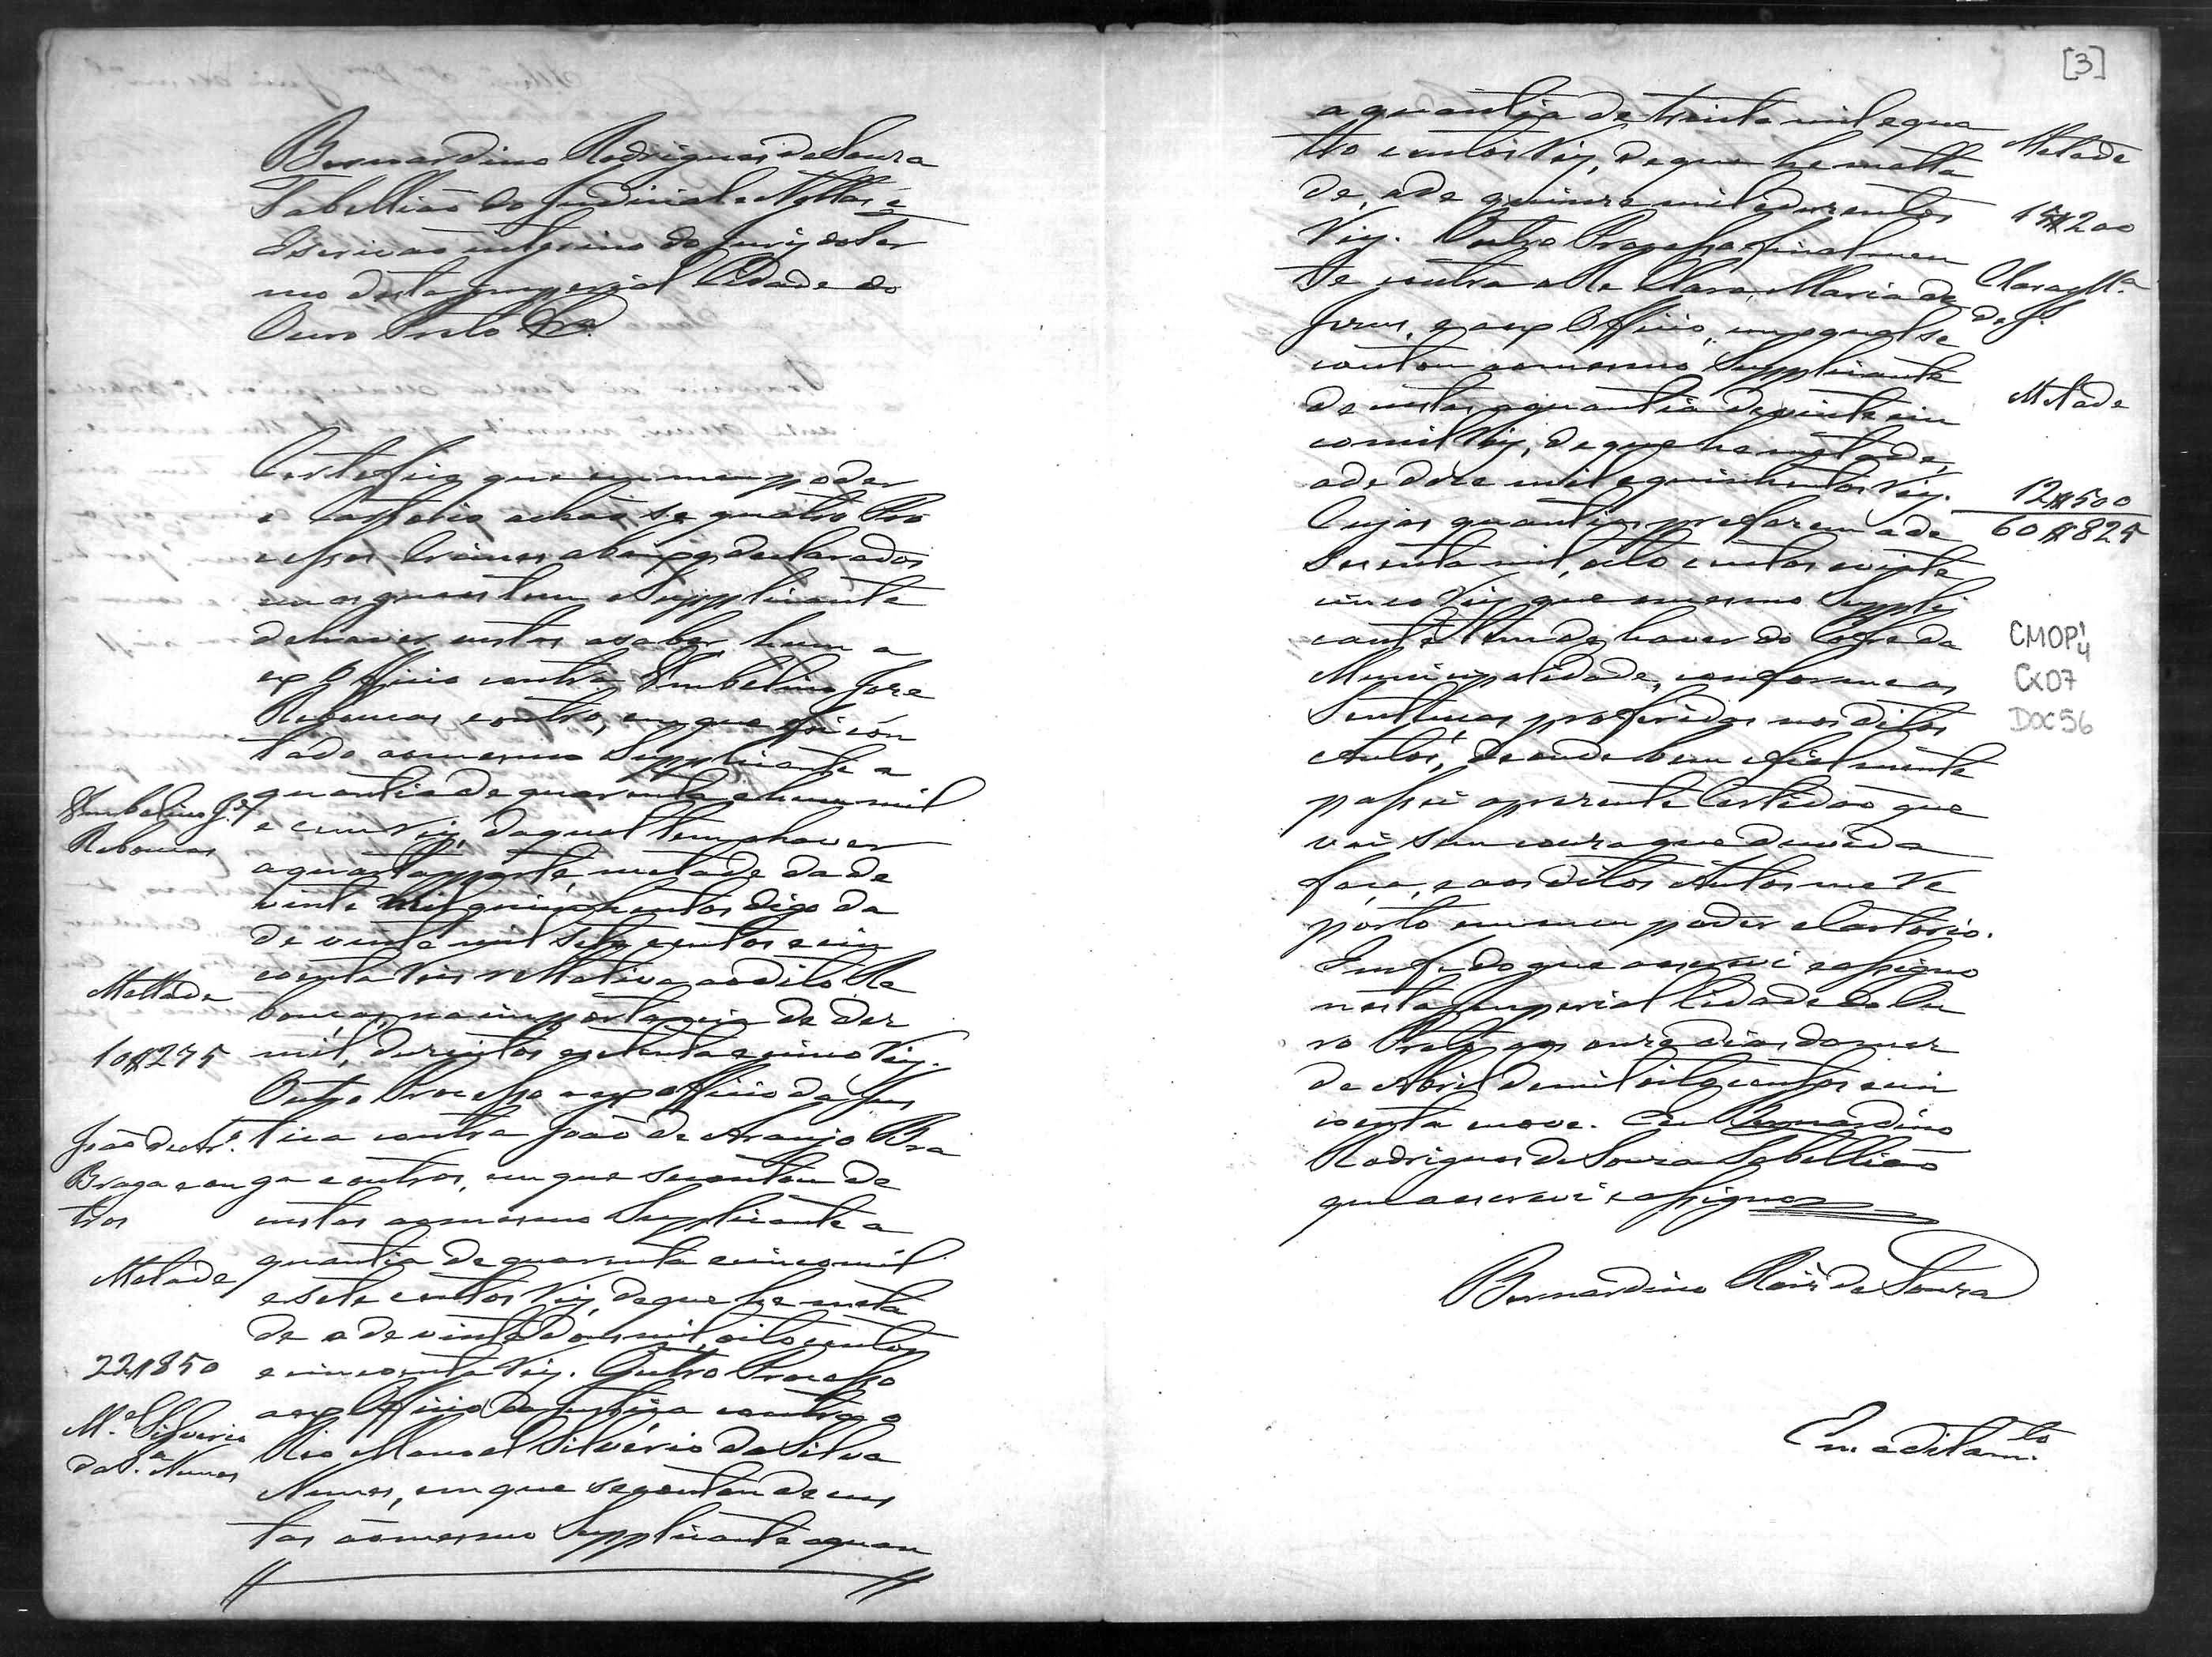 Bernardino Rodrigues de Souza
Tabellião do Judicial e Nottas e
Escrivão interino do Jury do ter
mo desta Imperial Cidade do
Ouro Preto &ª.
Certefico que em meu poder
e Cartorio achão se quatro Pro
cessos Crimes abaixo declarados
em os quaes tem o Supplicante
dehaver custas asaber hum a
ex Officio contra Umbelino Jose
Rebouças, e outro, em que foi con
tado aomesmo Supplicante a
quantia de quarenta e hum mil
Umbelino J.e
Rebouças
e cem reis, daqual tem a haver
a quarta parte, metade da de
vinte mil quinhentos digo da
de vinte mil sete centos e cin
coenta reis rellativa ao dito Re
Mettade
bouças, na importancia de dez
10$275
mil, duzentos e setenta e cinco reis.
Outro Processo a ex officio da Jus
João de Ar.º
tiça contra João de Araujo Bra
Braga e ou
tros
ga e outros, em que se contou de
custas aomesmo Supplicante a
quantia de quarenta e cinco mil
Metade
e sete centos reis, de que he meta
de a de vinte dous mil, oito centos
22$850
e cincoenta reis. Outro Processo
a ex Officio da Justiça contra o
M.el Silverio
da S.ª Nunes
Reo Manoel Silverio da Silva
Nunes, em que se contou de cus
tas aomesmo Supplicante a quan
[3]
a quantia de trinta mil e qua
tro centos reis, de que he metta
Metade
de, a de quinze mil e duzentos
15$200
reis. Outro Processo finalmen
te contra a Re Clara Maria de
Clara M.ª
de J.
Jesus, e a ex Officio, em o qual se
contou aomesmo Supplicante
de custas a quantia de vinte cin
Metade
co mil reis, de que he metade,
a de doze mil e quinhentos reis.
12$500
Cujas quantias prefazem a de
60$825
secenta mil, oito centos e vinte
cinco reis que o mesmo Suppli
cante tem de haver do Cofre da
Municipalidade, conforme as
Sentenças proferidas nos ditos
Autos, de onde bem e fielmente
passei a presente Certidão que
vai sem couza que duvida
faça, e aos ditos Autos me re
porto em meu poder e Cartorio.
Em fé do que a escrevi e assigno
nesta Imperial Cidade do Ou
ro Preto aos onze dias do mez
de Abril de mil oito centos e cin
coenta e nove. Eu Bernardino
Rodrigues de Souza Tabellião
que a escrevi e assigno
Bernardino Roiz de Souza
Em aditam.to
CMOP
Cx07
DOC56